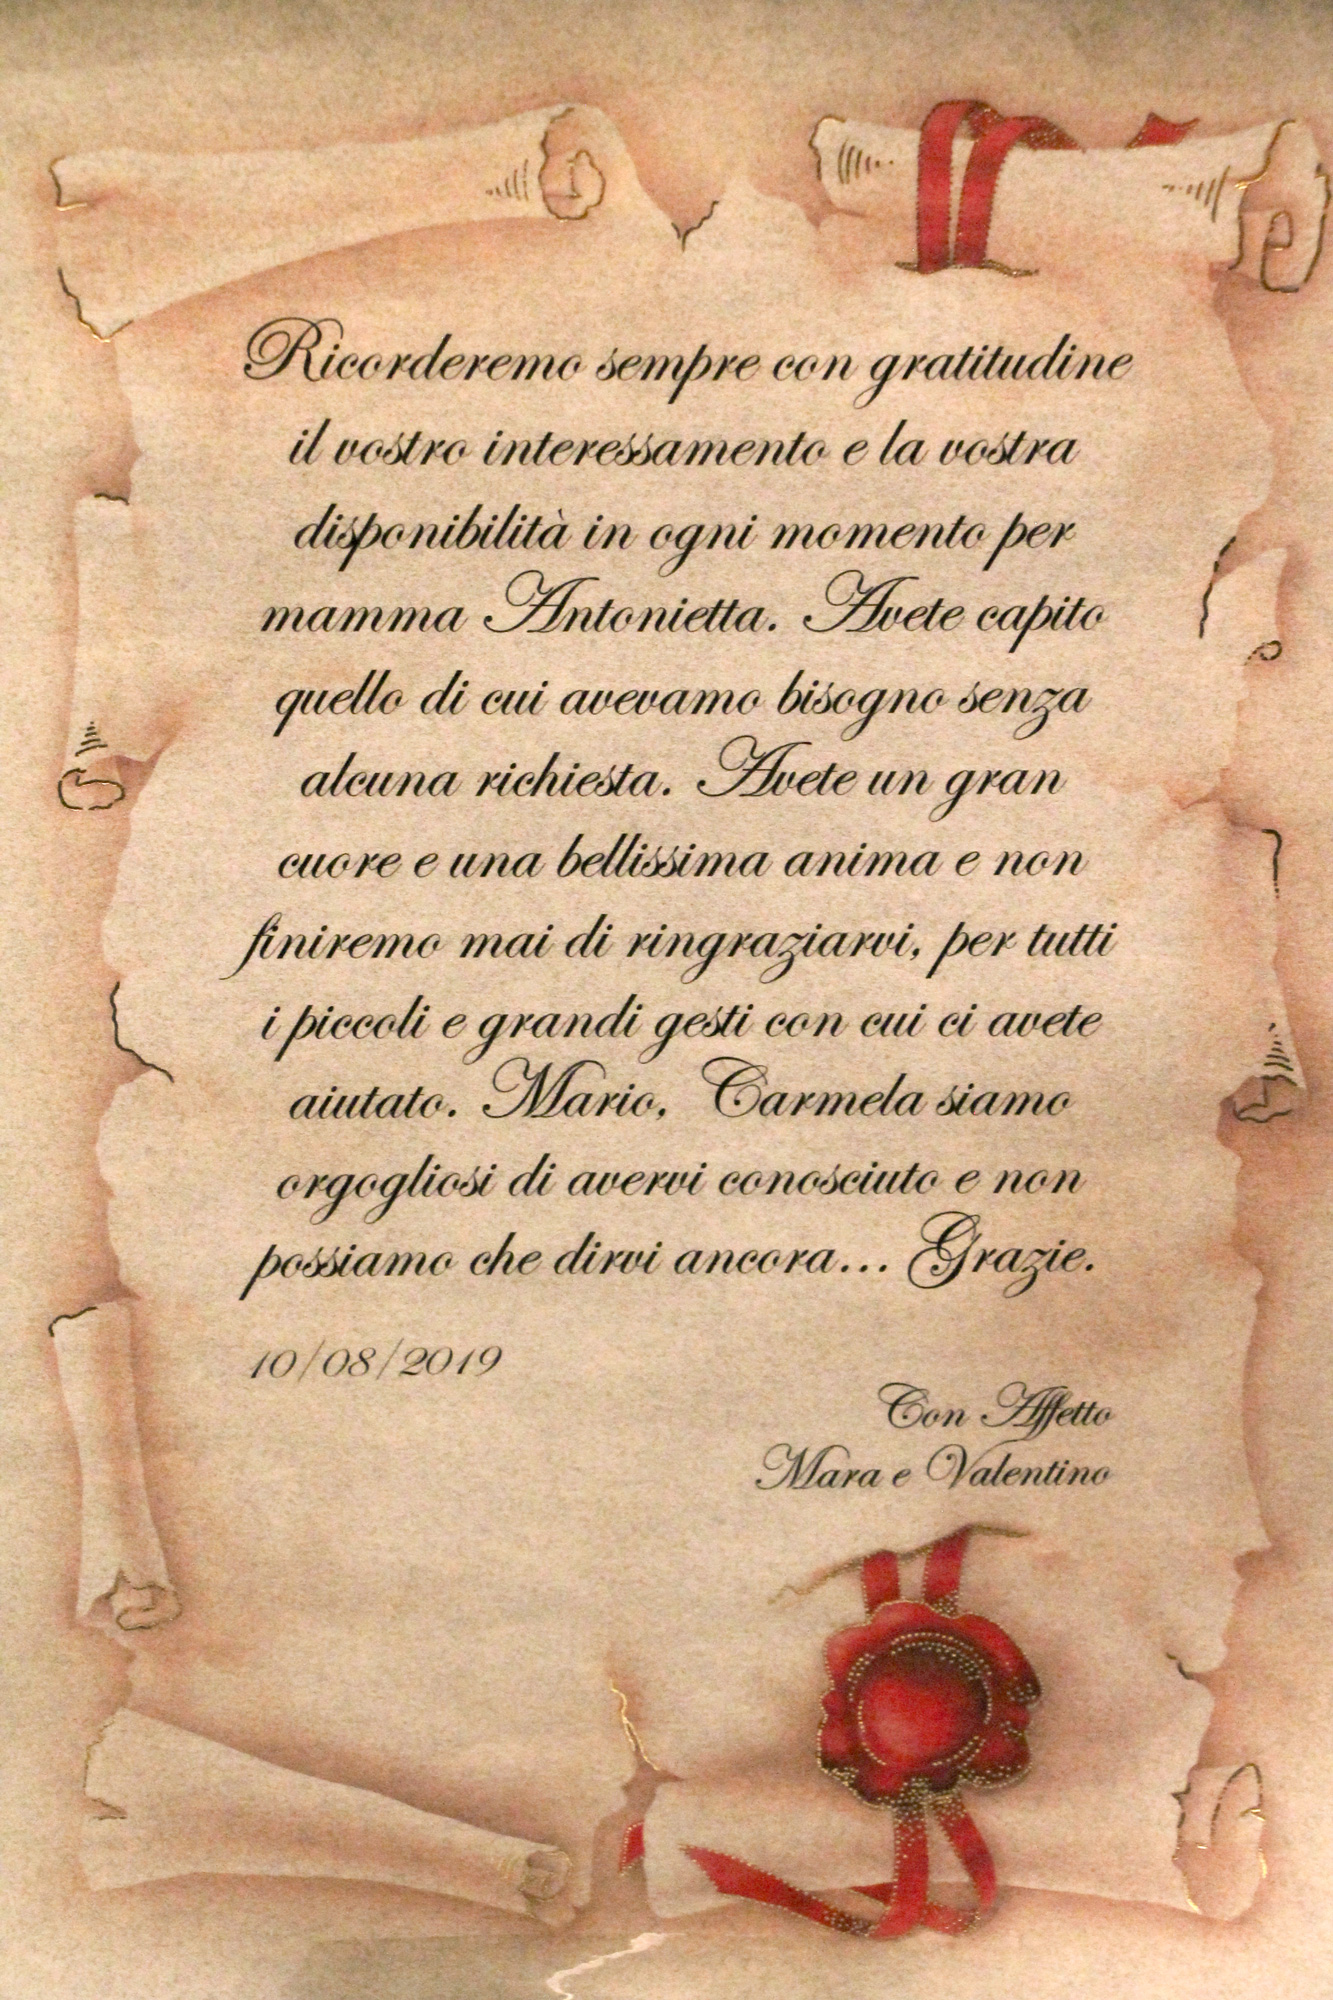 Ricorderemo sempre con gratitudine
il vostro interessamento e la vostra
disponibilità in ogni momento per
mamma Antonietta. Avete capito
quello di cui avevamo bisogno senza
alcuna richiesta. Avete un gran
cuore e una bellissima anima e non
finiremo mai di ringraziarvi, per tutti
i piccoli e grandi gesti con cui ci avete
aiutato. Mario, Carmela siamo
orgogliosi di avervi conosciuto e non
possiamo che dirvi ancora... Grazie.
10/08/2019
Con Affetto
Mara e Valentino